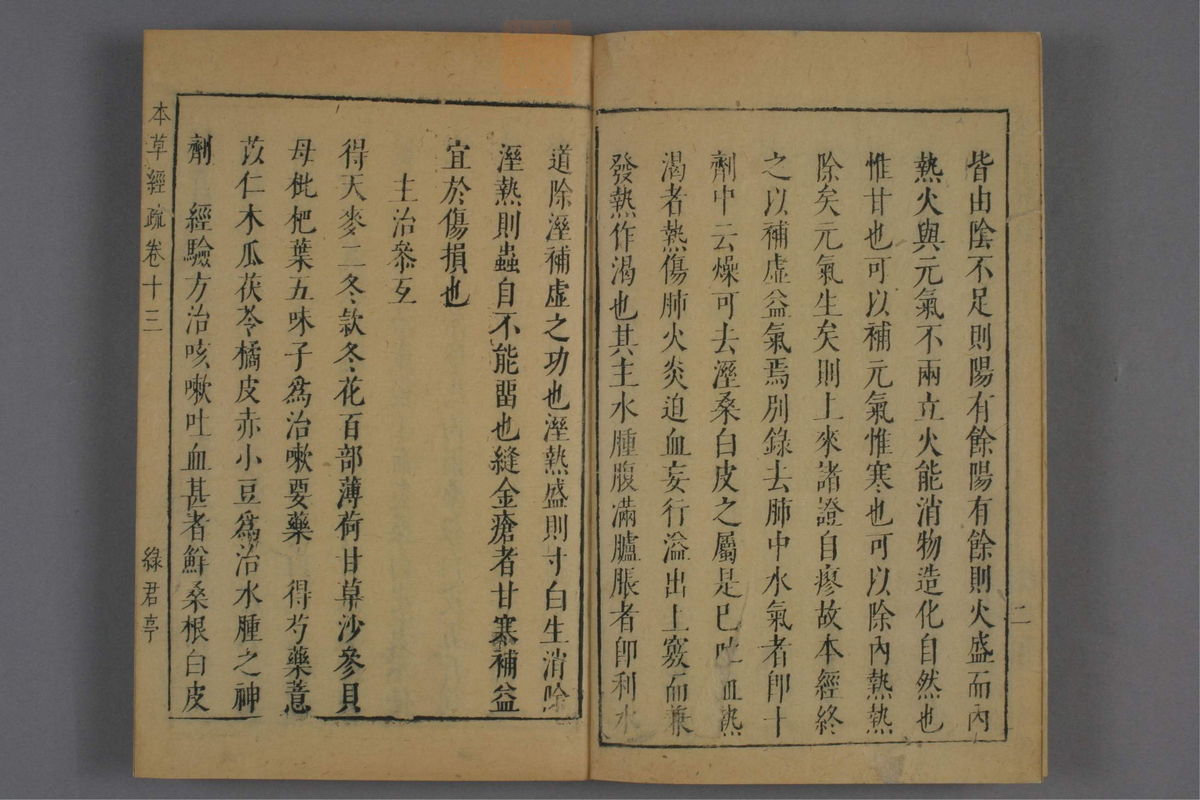 皆由陰不足則陽有餘陽有餘則火盛而內
熱火與元氣不兩立火能消物造化自然也
惟甘也可以補元氣惟寒也可以除內熱熱
除矣元氣生矣則上來諸證自瘳故本經終
之以補虛益氣焉別錄去肺中水氣者即十
劑中云燥可去溼桑白皮之屬是已吐血熱
渴者熱傷肺火炎迫血妄行溢出上竅而兼
發熱作渴也其主水腫腹滿臚脹者即利水
二
道除溼補虛之功也溼熱盛則寸白生消除
溼熱則蟲自不能畱也縫金瘡者甘寒補益
宜於傷損也
主治參互
得天麥二冬款冬花百部薄荷甘草沙參貝
母枇杷葉五味子爲治嗽要藥 得芍藥薏
苡仁木瓜茯苓橘皮赤小豆爲治水腫之神
劑 經驗方治咳嗽吐血甚者鮮桑根白皮
本草經疏卷十三
綠君亭